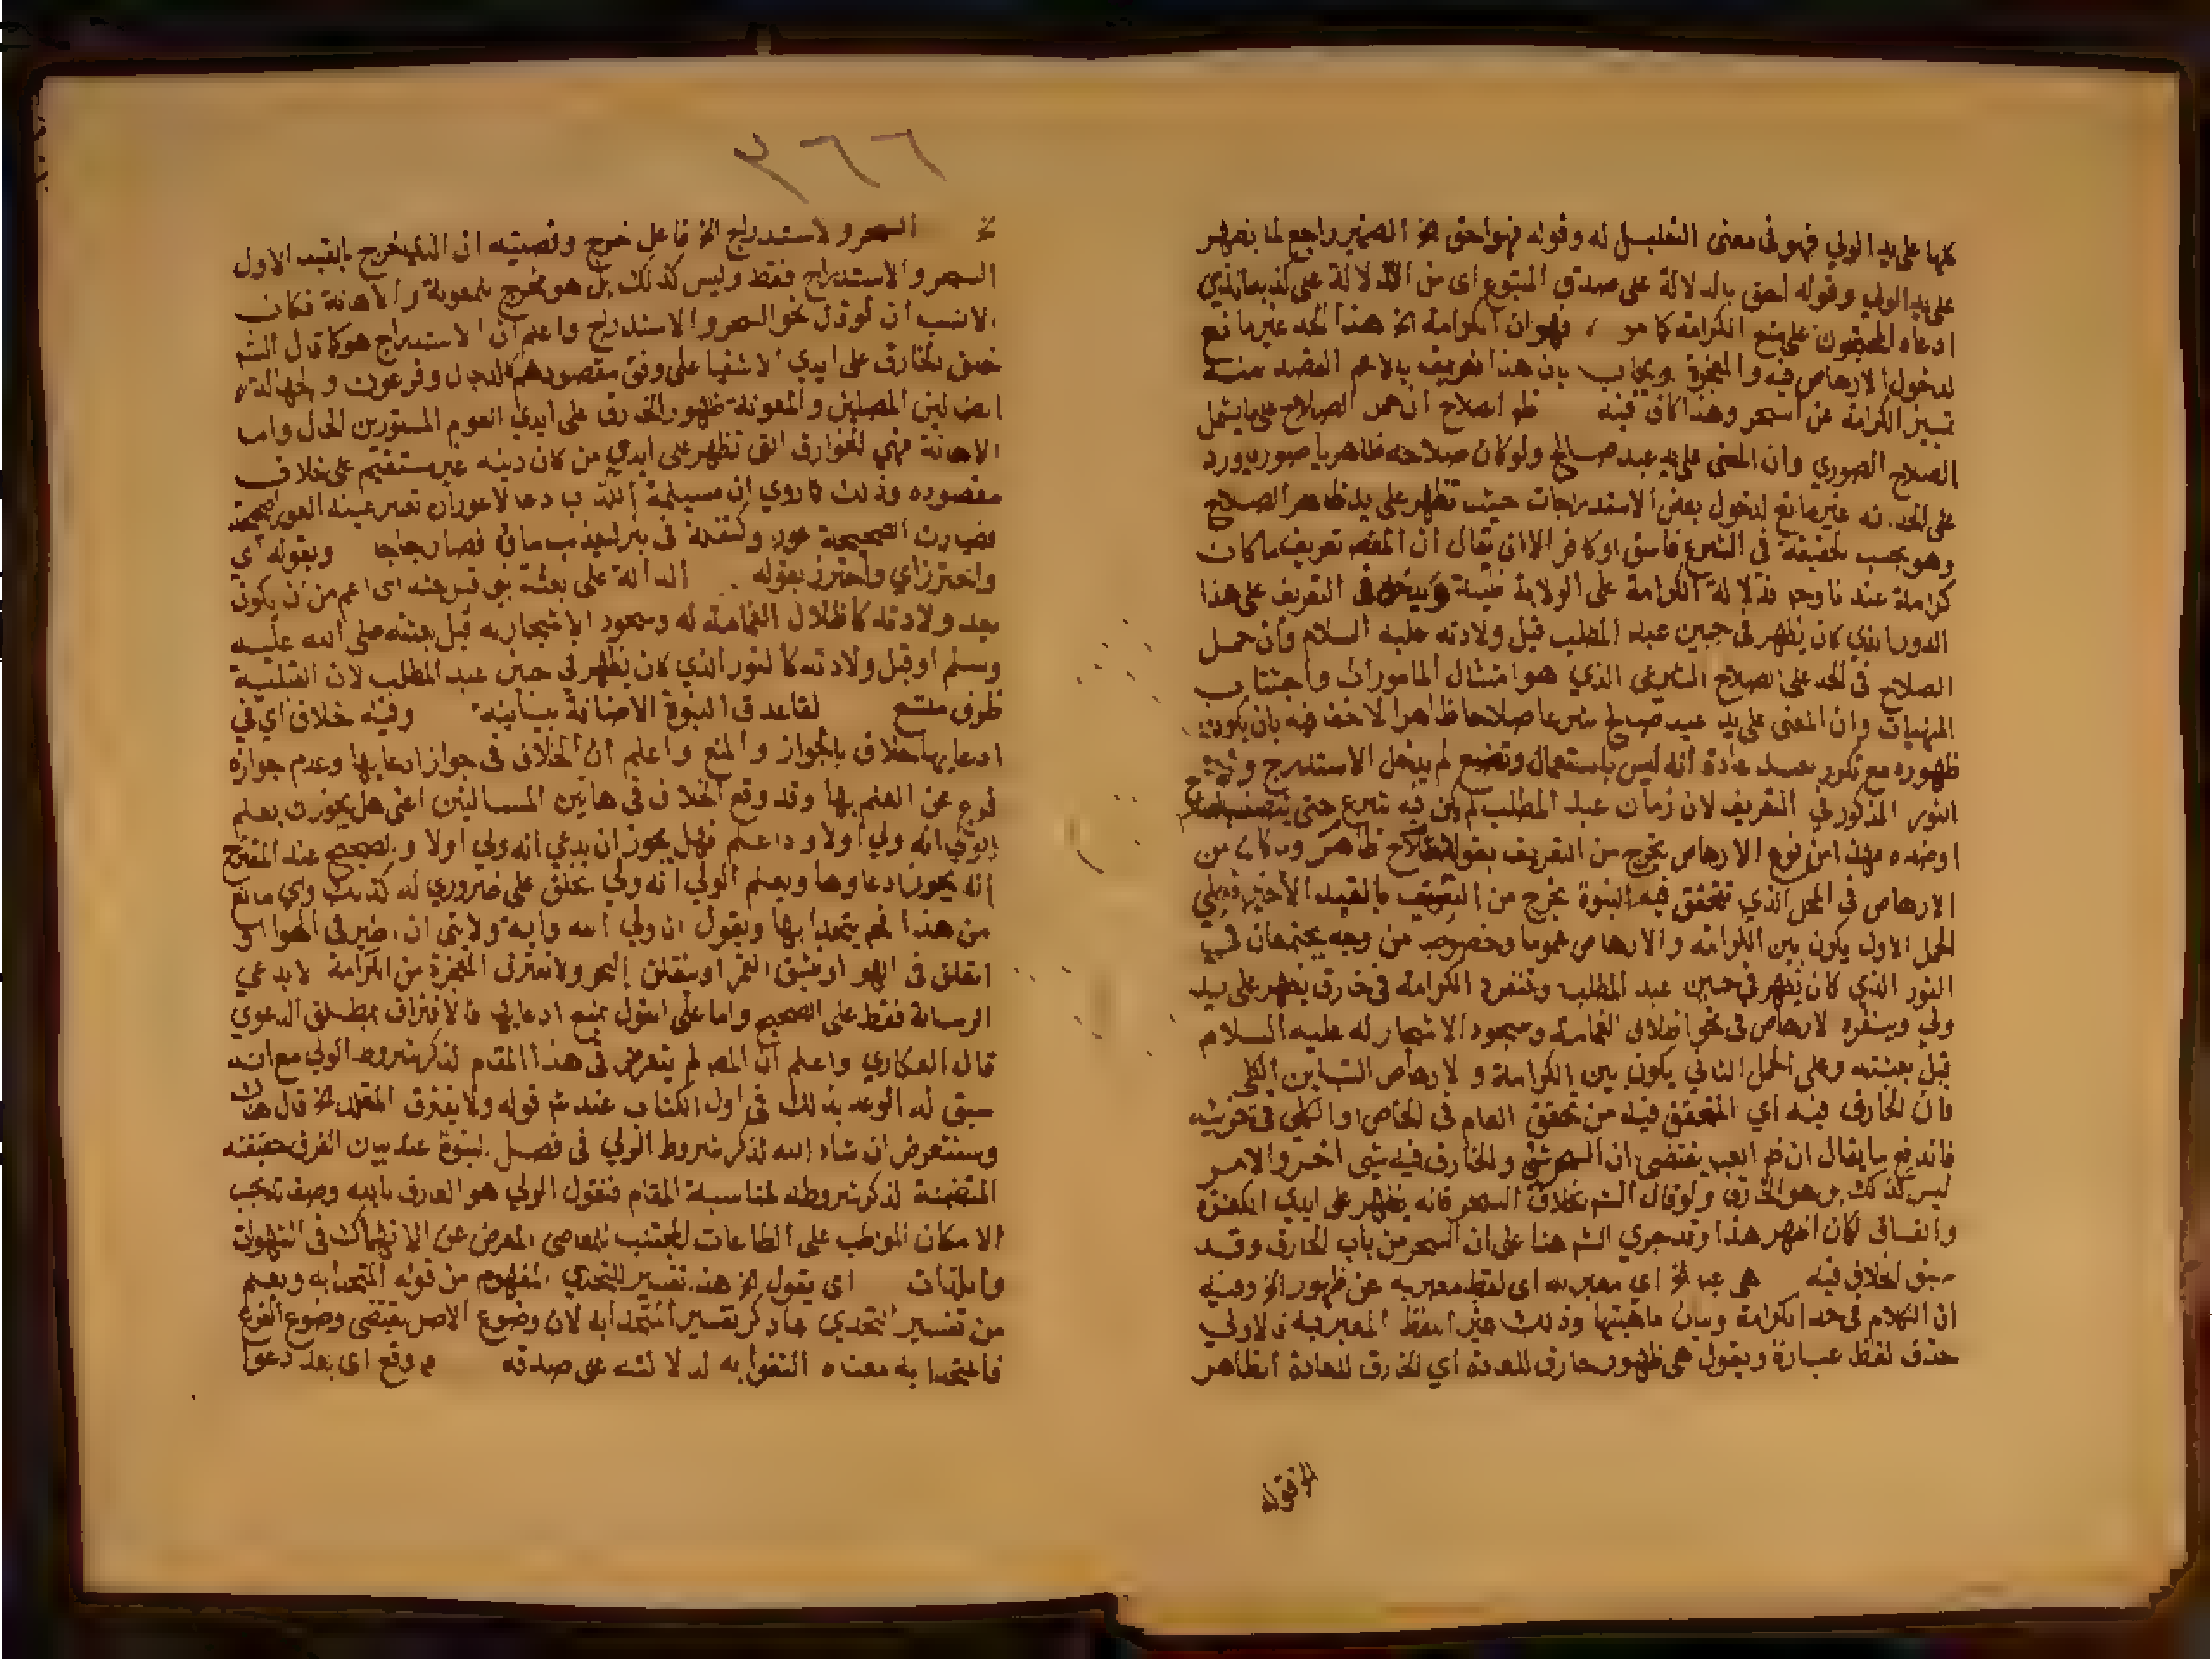 كلها على يد الولي فهو في معنى التعليل له وقوله فهو احق الخ الضمير راجع لما يظهر
على يد الولي وقوله احق بالدلالة على صدق المتبوع اى من الدلالة على كذبه الذي
ادعاه المحتجون على منع الكرامة كما مر فهو ان الكرامة الخ هذا الحد غير مانع
لدخول الارهاص فيه والمعجزة ويجاب بان هذا تعريف بالاعم القصد منه
تمييز الكرامة عن السحر وهذا كاف فيه ظم الصلاح ان حمل الصلاح على ما يشمل
الصلاح الصوري وان المعنى على يد عبد صالح ولو كان صلاحه ظاهريا صوريا ورد
على الحد انه غير مانع لدخول بعض الاستدراجات حيث تظهر على يد ظاهر الصلاح
وهو بحسب الحقيقة في الشرع فاسق او كافر الا ان يقال ان المقصم تعريف ما كان
كرامة عند ناوحم فدلالة الكرامة على الولاية ظنية ويدخل في التعريف على هذا
النور الذي كان يظهر في جبين عبد المطلب قبل ولادته عليه السلام وان حمل
الصلاح في الحد على الصلاح الشرعي الذي هو امتثال المامورات واجتناب
المنهيات وان المعنى على يد عبد صالح شرعا صلاحا ظاهرا لا خفا فيه بان يكون
ظهوره مع تكرره عادة انه ليس باستعمال وتصنع لم يدخل الاستدراج ولا
النور المذكور في التعريف لان زمان عبد المطلب لم يكن فيه شرع حتى يتصف بصلاح
او ضده فهذا من نوع الارهاص يخرج من التعريف بقوله صلاح ظاهر وما كان من
الارهاص في المحل الذي تتحقق فيه النبوة يخرج من التعريف بالقيد الاخير فعلى
الحمل الاول يكون بين الكرامة والارهاص عموما وخصوصا من وجه يجتمعان في
النور الذي كان يظهر في جبين عبد المطلب وتنفرد الكرامة في خارق يظهر على يد
ولي وينفرد الارهاص في نحو اظلال الغمامة وسجود الاشجار له عليه السلام
قبل بعثته وعلى الحمل الثاني يكون بين الكرامة والارهاص التباين الكلي
فان الخارق فيه اي المتحقق فيه من تحقق العام في الخاص او الكلي في جزئيه
فاندفع ما يقال ان ظم العب يقتضي ان السحر شئ والخارق فيه شئ اخر والامر
ليس كذلك بل هو الخارق ولو قال الشم بخلاف السحر فانه يظهر على ايدي الكفرة
والفساق لكان اظهر هذا وقد جرى الشم هنا على ان السحر من باب الخارق وقد
سبق الخلاف فيه هى عبا الخ اي معبر به اى لفظ معبر به عن ظهور الخ وفيه
ان الكلام في حد الكرامة وبيان ماهيتها وذلك غير اللفظ المعبر به فالاولي
حذف لفظ عبارة ويقول هي ظهور خارق للعادة اي الخارق للعادة الظاهر
فقوله
٣٦٦
السحر والاستدراج الخ فاعل خرج وقضيته ان الذي خرج بالقيد الاول
السحر والاستدراج فقط وليس كذلك بل هو مخرج للمعونة والاهانة فكان
الانسب ان لو قال نحو السحر والاستدراج واعلم ان الاستدراج هو كما قال الشم
خلق الخارق على ايدي الاشقيا على وفق مقصودهم كالدجال وفرعون والجهالة
الضالين المضلين والمعونة ظهور الخارق على ايدي العوام المستورين الحال واما
الاهانة فهي الخوارق التي تظهر على ايدي من كان دينه غير مستقيم على خلاف
مقصوده وذلك كما روي ان مسيلمة الكذاب دعا لاعور ان تصير عينه العورا صحيحة
فصارت الصحيحة عورا وكتفله في بئر ليعذب ماؤه فصار اجاجا وبقوله اي
واحترز اي واحترز بقوله الدالة على بعثة نبي قبل بعثته اى اعم من ان يكون
بعد ولادته كاظلال الغمامة له وسجود الاشجار له قبل بعثته صلى الله عليه
وسلم او قبل ولادته كالنور الذي كان يظهر في جبين عبد المطلب لان القبلية
ظرف متسع لقاعدة النبوة الاضافة بيانية وفيه خلاف اي في
ادعايها خلاف بالجواز والمنع واعلم ان الخلاف في جواز ادعايها وعدم جوازه
فرع عن العلم بها وقد وقع الخلاف في هاتين المسالتين اعني هل يجوز ان يعلم
الولي انه ولي او لا واذا علم فهل يجوز ان يدعي انه ولي او لا والصحيح عند المقترح
انه يجوز ادعاوها ويعلم الولي انه ولي بخلق علم ضروري له كذلك واي مانع
من هذا ثم يتحدا بها ويقول انا ولي الله واية ولايتي ان اطير في الهوا او
انفلق في الهوا او ينشق القمر او ينفلق البحر ولا تفترق المعجزة من الكرامة الا بدعي
الرسالة فقط على الصحيح واما على القول بمنع ادعايها فالافتراق بمطلق الدعوى
قال العكاري واعلم ان المصم لم يتعرض في هذا المقام لذكر شروط الولي مع انه
سبق له الوعد بذلك في اول الكتاب عند شم قوله ولا يفترق المقلد الخ قال هناك
وسنتعرض ان شاء الله لذكر شروط الولي في فصل النبوة عند بيان الفرق حقيقته
المتضمنة لذكر شروطه لمناسبة المقام فنقول الولي هو العارف بالله وصفاته بحسب
الامكان المواظب على الطاعات المجتنب للمعاصي المعرض عن الانهماك في الشهوات
واللذات اى يقول الخ هذا تفسير للتحدي المفهوم من قوله المتحدا به ويعلم
من تفسير التحدي هنا ذكر تفسير المتحدا به لان وضوح الاصل يقتضى وضوح الفرع
فالمتحدا به معناه التفوا به لدلالته على صدقه م وقع اى بعد دعوا